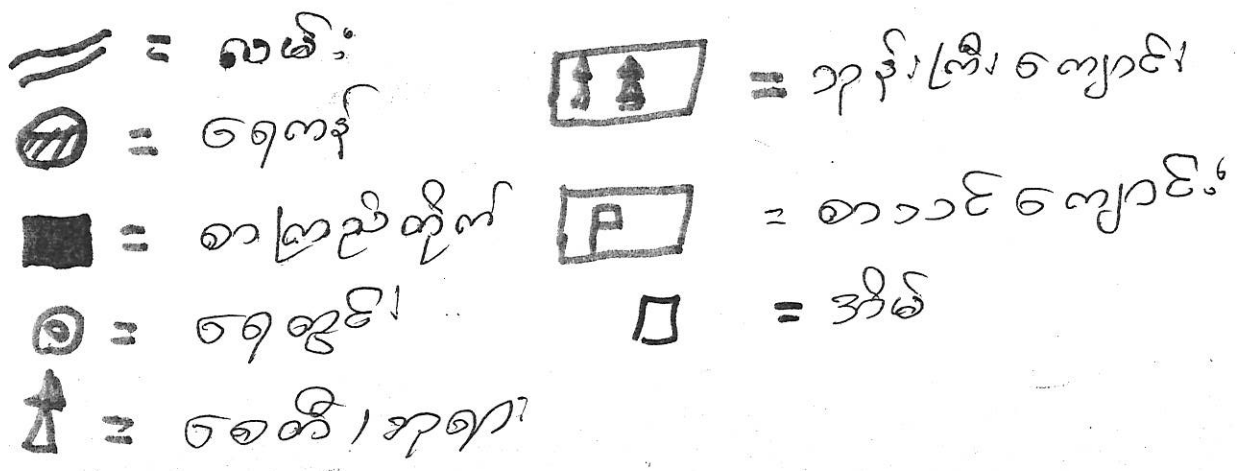 = လမ်း
= ရေကန်
= စာကြည့်တိုက်
= ရေတွင်း
= စေတီ / ဘုရား
= ဘုန်းကြီးကျောင်း
= စာသင်ကျောင်း
= အိမ်